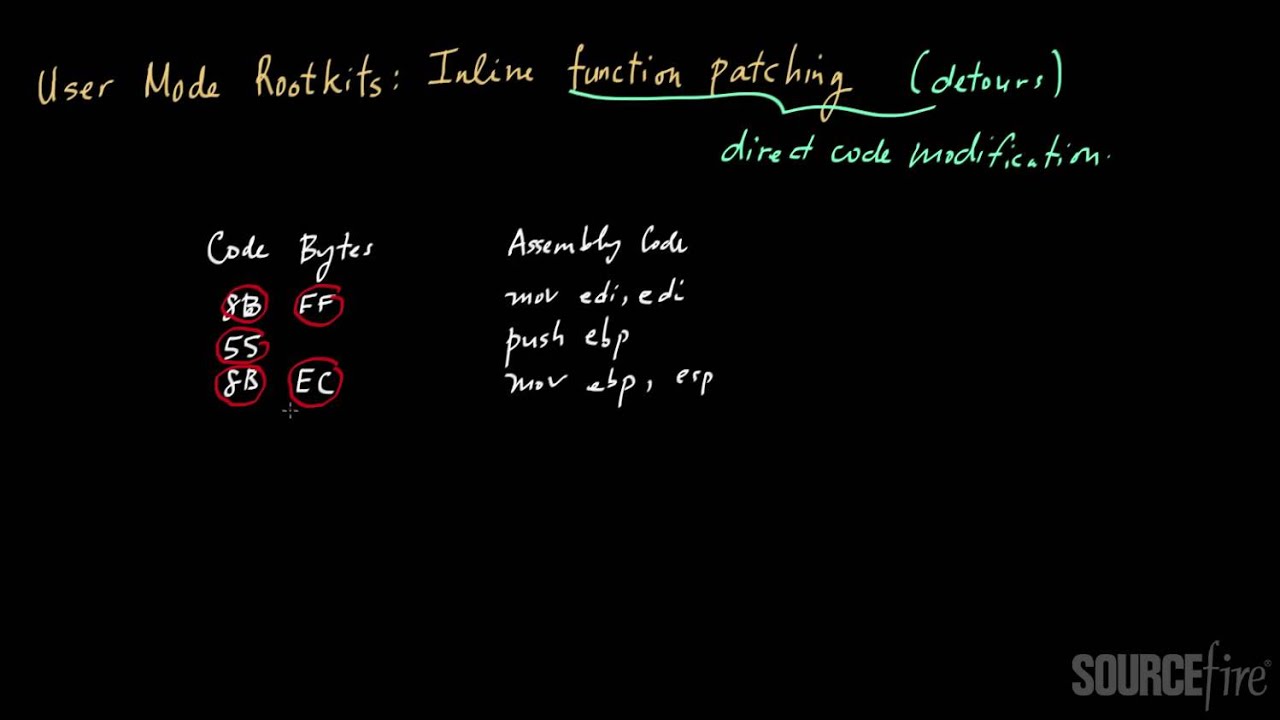 User Mode Rootkits: Inline function patching (detours)
direct code modification.
Code Bytes Assembly Code
8B FF mov edi, edi
55 push ebp
8B EC mov ebp, esp
SOURCEfire®